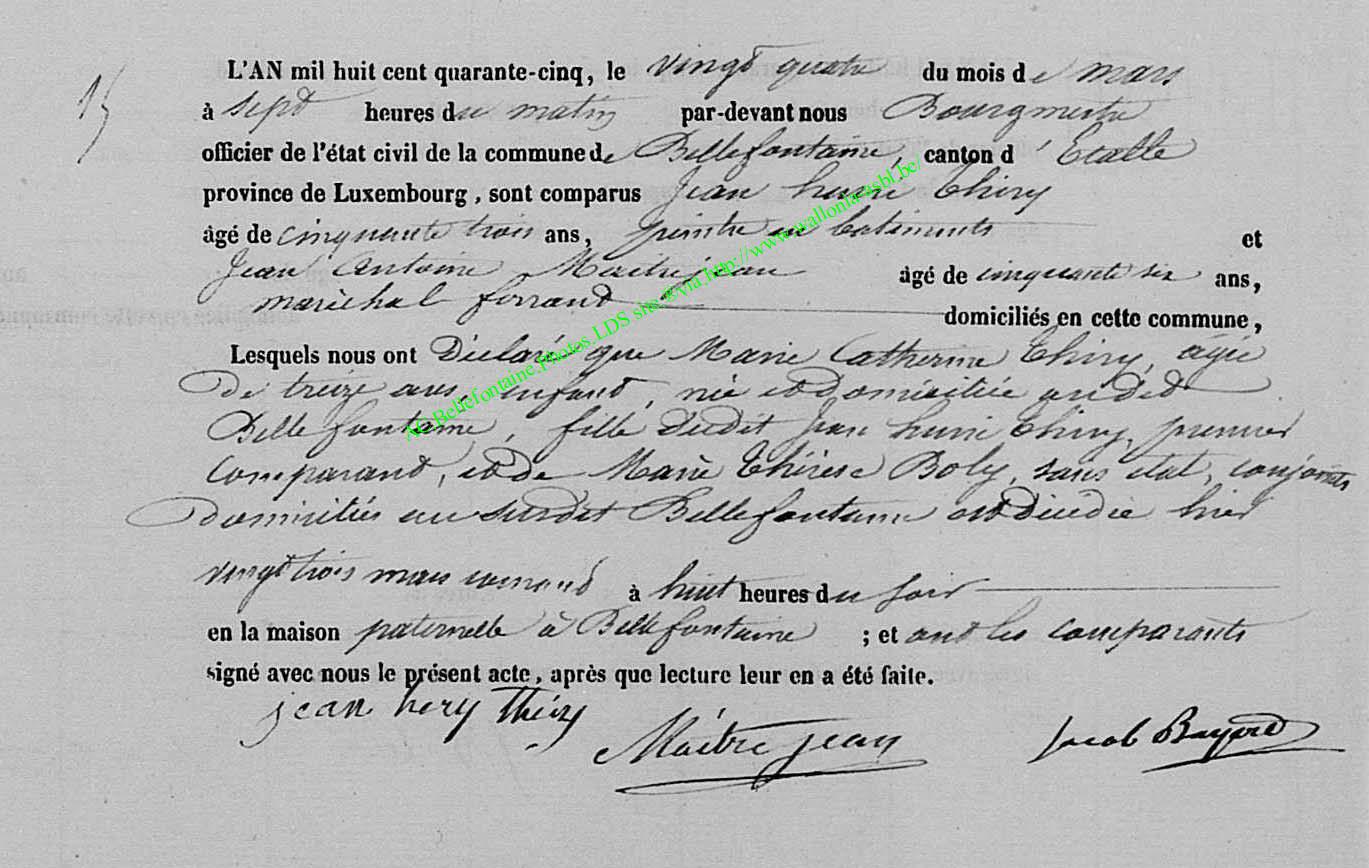 15
L'AN mil huit cent quarante-cinq, le vingt quatre du mois de mars
à sept heures du matin par-devant nous Bourgmestre
officier de l'état civil de la commune de Bellefontaine, canton d'Etalle
province de Luxembourg, sont comparus Jean henri Thiry
âgé de cinquante trois ans, peintre en batiments et
Jean Antoine Maitrejean âgé de cinquante six ans,
maréchal ferrand domiciliés en cette commune,
Lesquels nous ont Déclaré que Marie Catherine Thiry, âgée
De treize ans, enfant, née et domiciliée audit
Bellefontaine, fille dudit Jean henri Thiry, premier
comparant, et de Marie Thérèse Boly, sans etat, conjoints
domiciliés au susdit Bellefontaine est décédée hier
vingt trois mars courant à huit heures du soir
en la maison paternelle à Bellefontaine ; et ont les comparants
signé avec nous le présent acte, après que lecture leur en a été faite.
jean hery Thiry
Maitre jean
Jacob Bayard
AC.Bellefontaine.Photos.LDS site via http://www.wallonia-asbl.be/